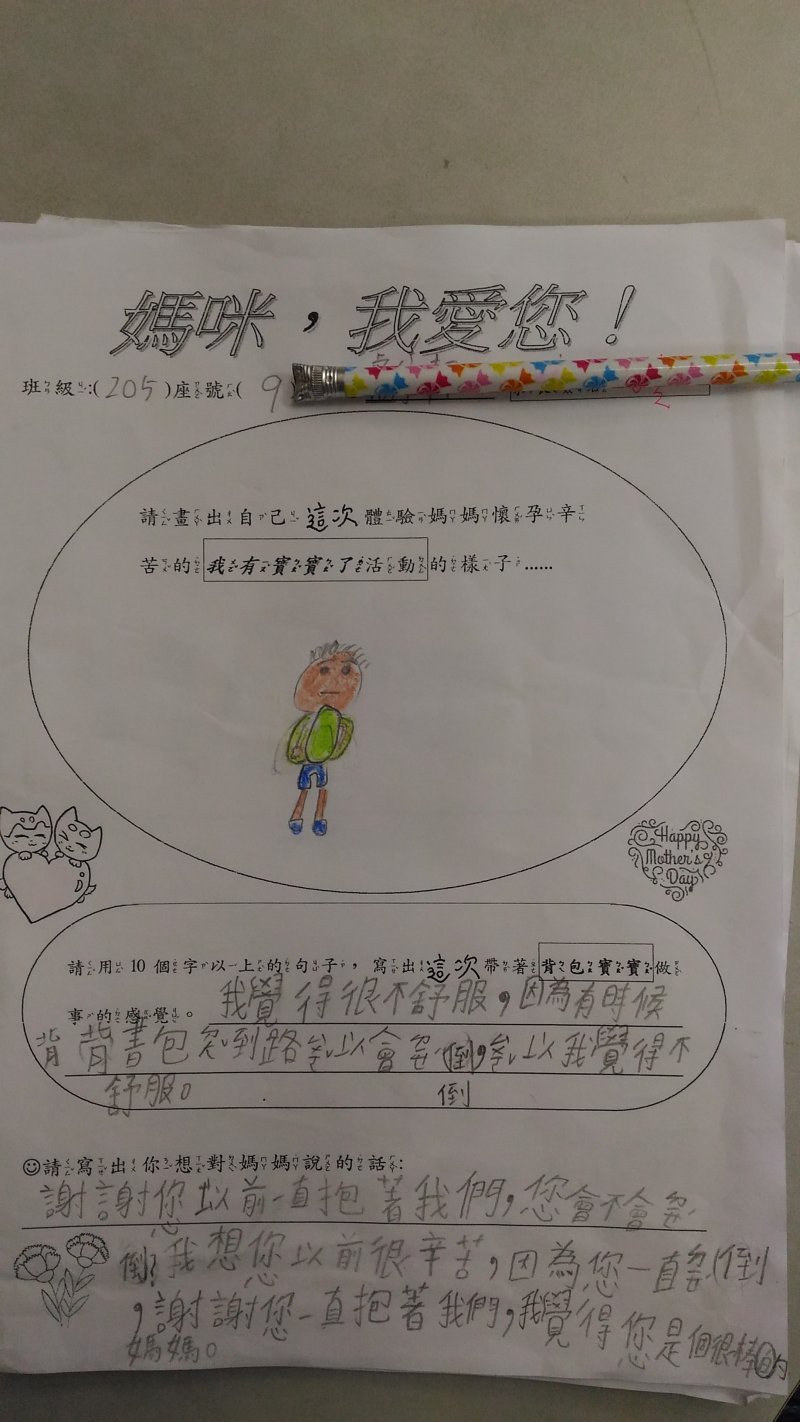 媽咪，我愛您！
班級:(205)座號(9
請畫出自己這次體驗媽媽懷孕辛
苦的我有寶寶了活動的樣子……
Happy
Mother's
Day
請用10個字以上的句子，寫出這次帶著背包寶寶做
事的感覺。我覺得很不舒服，因為有時候
背背書包 到路 以會 倒， 以我覺得不
舒服。
倒
☺請寫出你想對媽媽說的話:
謝謝您以前一直抱著我們，您會不會
倒？我想您以前很辛苦，因為您一直 倒
，謝謝您一直抱著我們，我覺得您是個很棒的
媽媽。